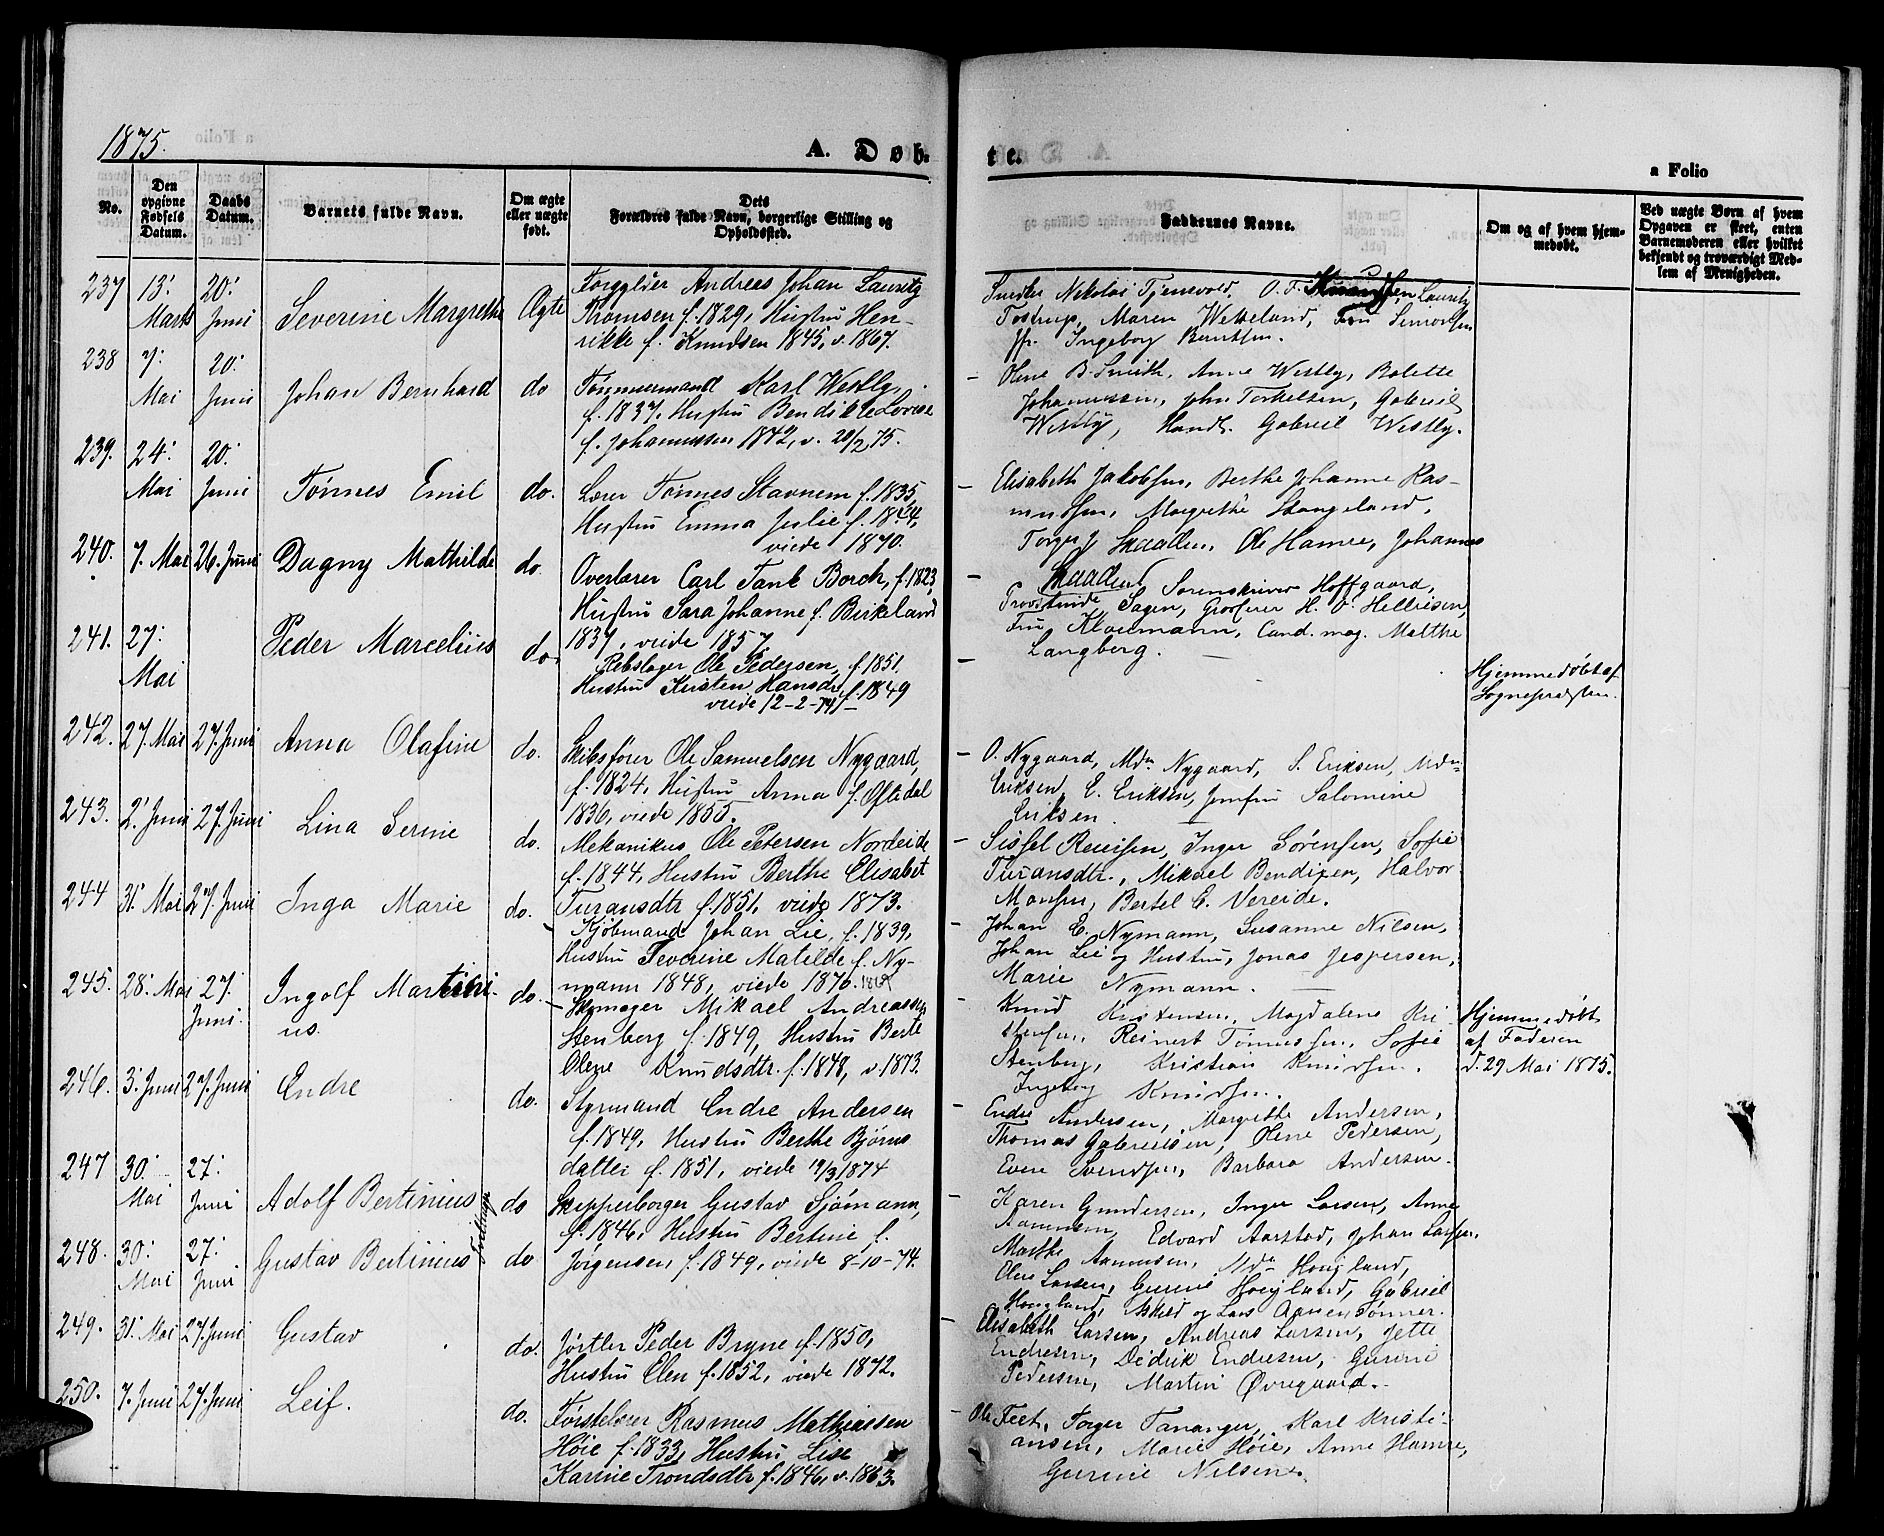 1875.
A. Døb-
te.
a Folio
No.
Den opgivne Fødsels Datum.
Daabs Datum.
Barnets fulde Navn.
Om ægte eller uægte født.
Dets Forældres fulde Navn, borgerlige Stilling og Opholdssted.
Faddernes Navne.
Om og af hvem hjemmedøbt.
Ved uægte Børn af hvem Opgaven er skeet, enten Barnemoderen eller hvilket bekjendt og troværdigt Medlem af Menigheden.
237 13' Marts 20' Juni Severine Margrethe Ægte
Andreas Johan Lauritz
Thomsen f. 1829, Hustru Hen-
rikke f. Knudsen 1845, v. 1867.
Nikolai Tjensvold, O. T. Lauritz
Tostrup, Maren Wetteland, Simonsen
Ingeborg Berntsen.
238 7' Mai 20' Juni Johan Bernhard do
Tømmermand Karl Westly,
f. 1837, Hustru Bendikte Lovise
f. Johannessen 1842, v. 20/2 75.
Olene B. Smith, Anne Westly, Bolette
Johannessen, John Torkelsen, Gabriel
Westly, Handl. Gabriel Westly.
239. 24' Mai 20' Juni Tønnes Emil do.
Lærer Tønnes Stavnem f. 1835,
Hustru Emma Juslie f. 1854,
viede 1870.
Elisabeth Jakobsen, Berthe Johanne Ras-
mussen, Margrethe Stangeland,
Torger J Skaadlen, Ole Hamre, Johannes
Skaadlen
240. 7. Mai 26. Juni Dagny Mathilde do.
Overlærer Carl Tank Borch, f. 1823,
Hustru Sara Johanne f. Birkeland
1837, viede 1857
Sorenskriver Hoffgaard,
Provstinde Sagen, Giørfører H. O. Helliesen,
Fru Kloumann, Cand. mag. Malthe
Langberg.
241. 27' Mai Peder Marcelius do.
Rebslager Ole Pedersen, f. 1851
Hustru Kirsten Hansdtr f. 1849
viede 12-2-74
Hjemmedøbt af
Sognepræsten.
242. 27. Mai 27. Juni Anna Olafine do.
Skibsfører Ole Samuelsen Nygaard,
f. 1824, Hustru Anna f. Oftedal
1836, viede 1855.
O. Nygaard, Mdm Nygaard, S. Eriksen, Mdm
Eriksen, E. Eriksen, Jomfru Salomine
Eriksen.
243. 2' Juni 27. Juni Lina Serine do.
Mekanikus Ole Petersen Nordeide
f. 1844, Hustru Berthe Elisabet
Turansdtr f. 1851, viede 1873.
Sissel Reiersen, Inger Sørensen, Sofie
Turansdtr., Mikael Bendixen, Halvor
Monsen, Bertel E. Vereide.
244 31. Mai 27. Juni Inga Marie do.
Kjøbmand Johan Lie, f. 1839,
Hustru Severine Matilde f. Ny-
mann 1848, viede 1870.
Johan E. Nymann, Susanne Nilsen,
Johan Lie og Hustru, Jonas Jespersen,
Marie Nymann.
245. 28' Mai 27' Juni. Ingolf Martini-
us. do.
Skomager Mikael Andreassen
Stenberg f. 1849, Hustru Berte
Olene Knudsdtr. f. 1848, v. 1873.
Knud Kristensen, Magdalene Kri-
stensen, Reinert Tønnessen, Sofie
Stenberg, Kristian Knudsen.
Ingeborg Knudsen.
Hjemmedøbt
af Faderen
d. 29 Mai 1875.
246. 3' Juni 27. Juni Endre do.
Styrmand Endre Andersen
f. 1849, Hustru Berthe Bjørns
datter f. 1851, viede 19/3 1874
Endre Andersen, Margrethe Andersen,
Thomas Gabrielsen, Olene Pedersen,
Even Svendsen, Barbara Andersen.
247 30' Mai 27' Juni Adolf Bertinius do
Tvillinge
Skipperborger Gustav Sjømann,
f. 1846, Hustru Bertine f.
Jørgensen, f. 1849, viede 8-10-74.
Karen Gundersen, Inger Larsen, Anne
Aanensen, Edvard Aarstad, Johan Larsen.
248. 30' Mai 27' Juni Gustav Bertinius do
Marthe Aanensen, Mdm Hougland,
Olene Larsen, Gurine Hougland, Gabriel
Hougland, Askild og Lars Aanensønner.
249. 31. Mai 27. Juni Gustav do.
Jørtler Peder Bryne f. 1850,
Hustru Elen f. 1852, viede 1872.
Elisabeth Larsen, Andreas Larsen, Jette
Endresen, Didrik Endresen, Gurine
Pedersen, Martin Øvregaard.
250. 7. Juni 27. Juni Leif. do.
Førstelærer Rasmus Mathiassen
Høie f. 1833, Hustru Lise
Karine Trondsdtr f. 1846, v. 1863.
Ole Feet, Torger Tananger, Karl Kristi-
ansen, Marie Høie, Anne Hamre,
Gurine Nilsen.